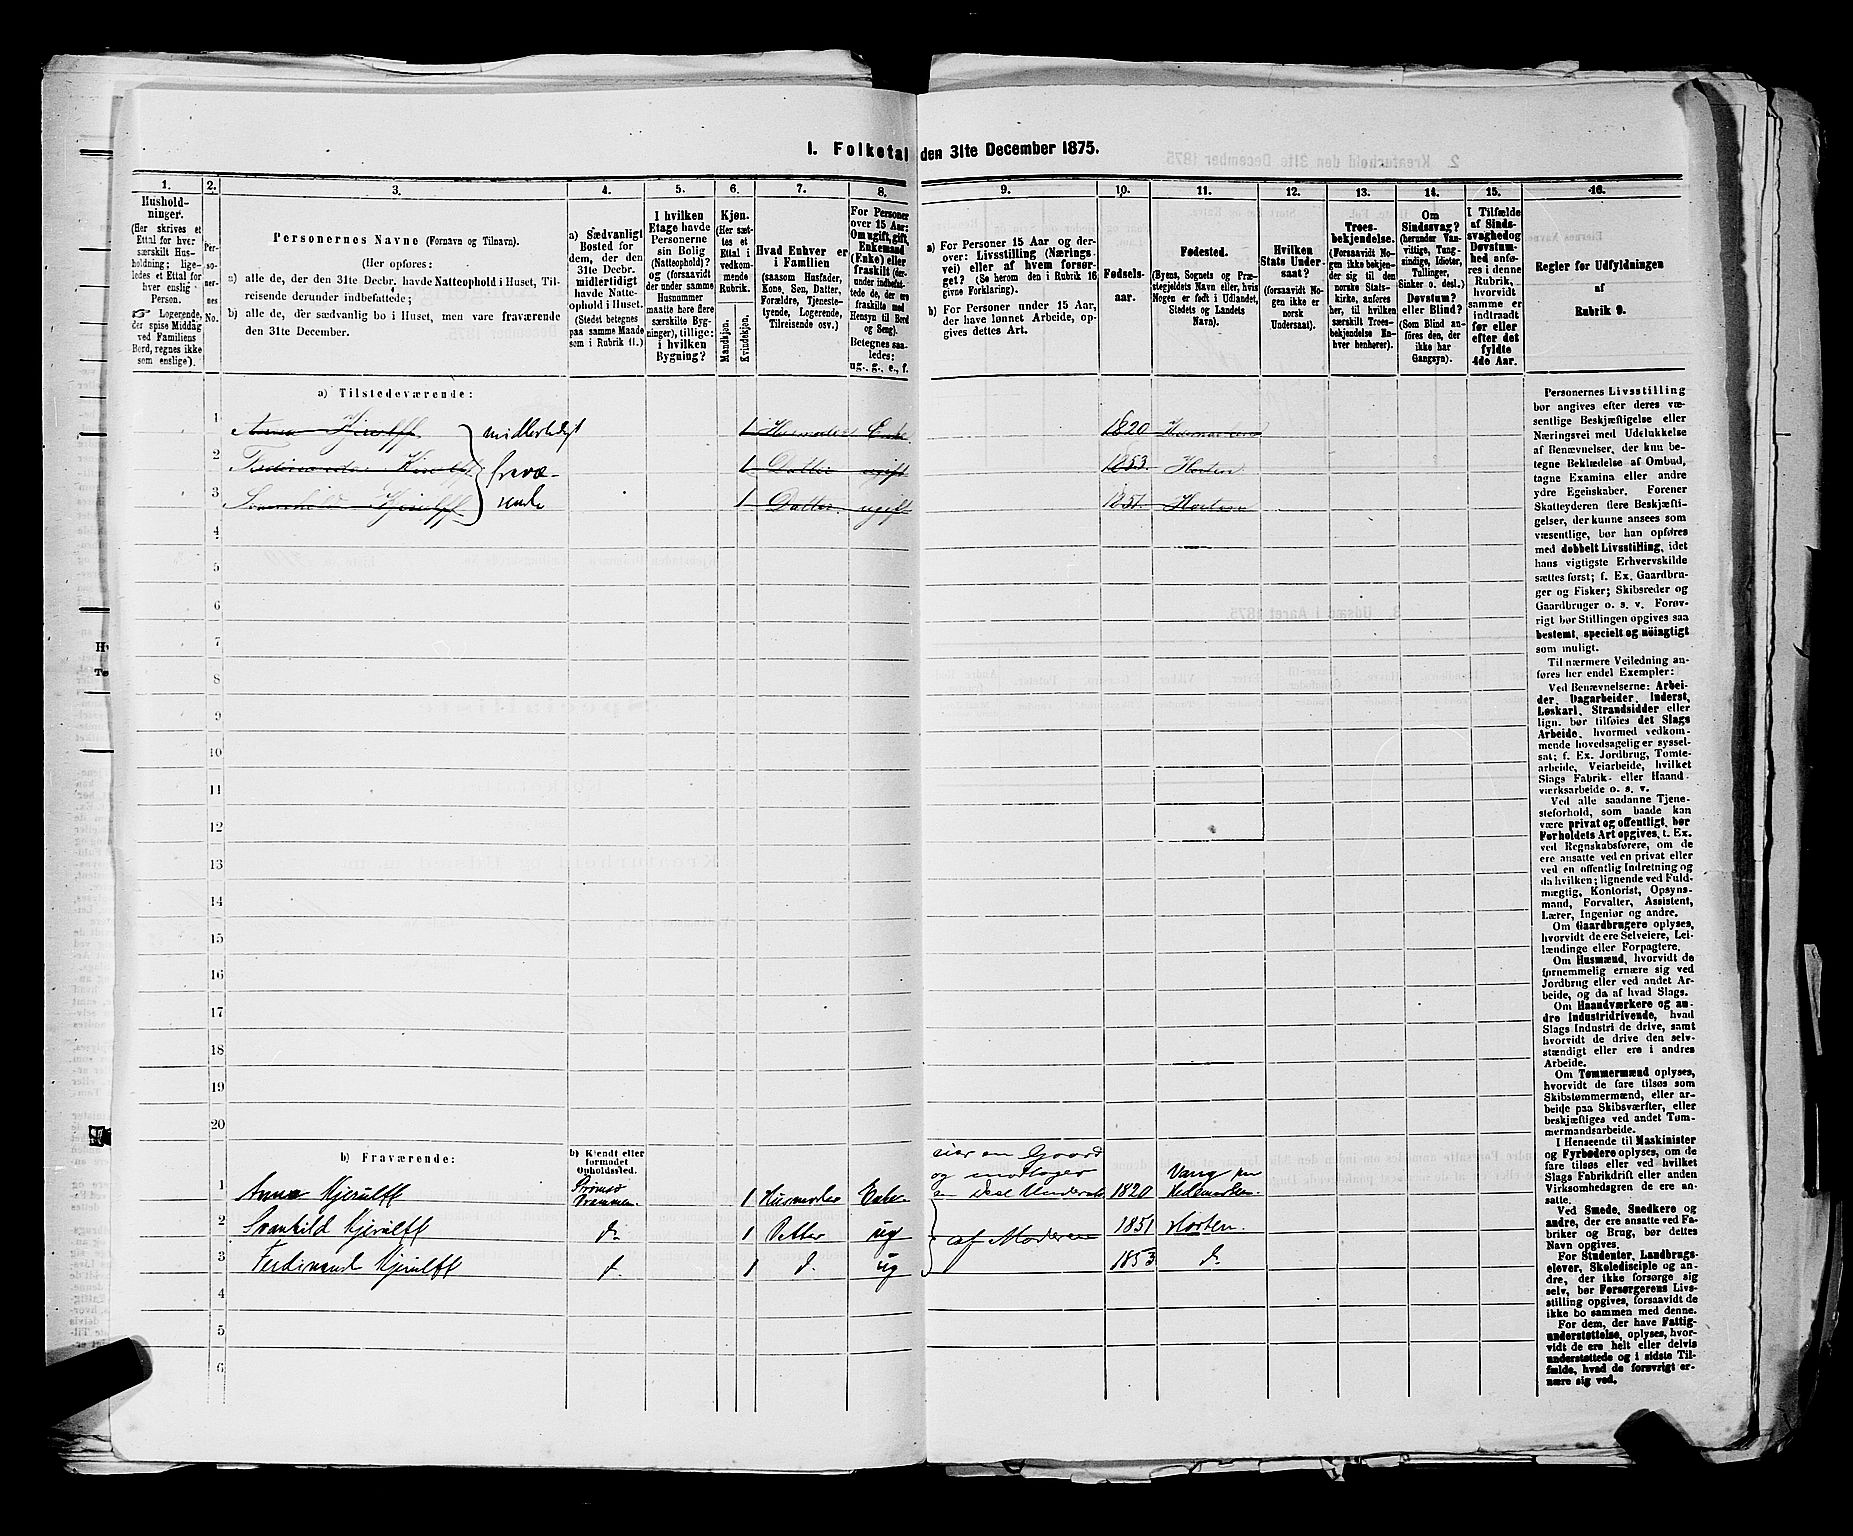 I. Folketal den 31te December 1875.
1.
Hushold-
ninger.
(Her skrives et
Ettal for hver
særskilt Hus-
holdning; lige-
ledes et Ettal for
hver enslig
Person.
☞ Logerende,
der spise Middag
ved Familiens
Bord, regnes ikke
som enslige).
2.
Per-
so-
ner-
nes
No.
3.
Personernes Navne (Fornavn og Tilnavn).
(Her opføres:
a) alle de, der den 31te Decbr. havde Natteophold i Huset, Til-
reisende derunder indbefattede;
b) alle de, der sædvanlig bo i Huset, men vare fraværende
den 31te December.
4.
a) Sædvanligt
Bosted for
dem, der den
31te Decbr.
midlertidigt
havde Natte-
ophold i Huset.
(Stedet betegnes
paa samme Maade
som i Rubrik 11.)
5.
I hvilken
Etage havde
Personerne
sin Bolig
(Natteophold)?
og (forsaavidt
der under samme
Husnummer
maatte høre flere
særskilte Byg-
ninger), tillige:
i hvilken
Bygning?
6.
Kjøn.
(Her sæt-
tes et
Ettal i
vedkom-
mende
Rubrik.
Mandkjøn.
Kvindekjøn.
7.
Hvad Enhver er
i Familien
(saasom Husfader,
Kone, Søn, Datter,
Forældre, Tjeneste-
tyende, Logerende,
Tilreisende osv.)
8.
For Personer
over 15 Aar:
Om ugift, gift,
Enkemand
(Enke) eller
fraskilt (der-
under indbefat-
tede de, der ere
fraskilte med
Hensyn til Bord
og Seng).
Betegnes saa-
ledes:
ug., g., e., f.
9.
a) For Personer 15 Aar og der-
over: Livsstilling (Nærings-
vei) eller af hvem forsør-
get? (Se herom den i Rubrik 16
givne Forklaring).
b) For Personer under 15 Aar,
der have lønnet Arbeide, op-
gives dettes Art.
10.
Fødsels-
aar.
11.
Fødested.
(Byens, Sognets og Præ-
stegjeldets Navn eller, hvis
Nogen er født i Udlandet,
Stedets og Landets
Navn).
12.
Hvilken
Stats Under-
saat?
(forsaavidt No-
gen ikke er
norsk
Undersaat).
13.
Troes-
bekjendelse.
(Forsaavidt No-
gen ikke bekjen-
der sig til den
norske Stats-
kirke, anføres
her, til hvilken
særskilt Troes-
bekjendelse En-
hver henhører).
14.
Om
Sindssvag?
(herunder Van-
vittige, Tung-
sindige, Idioter,
Tullinger,
Sinker o. desl.)
Døvstum?
eller Blind?
(Som Blind an-
føres den, der
ikke har
Gangsyn).
15.
I Tilfælde
af Sinds-
svaghed og
Døvstum-
hed anfø-
res i denne
Rubrik,
hvorvidt
samme er
indtraadt
før eller
efter det
fyldte
4de Aar.
16.
Regler for Udfyldningen
af
Rubrik 9.
a) Tilstedeværende:
1 Anna Kjerulff midlertidigt 1 Husmoder Enke 1820
2 Kjerulff fravæ- 1 Datter ugift 1853 Horten
3 Svanhild Kjerulff rende 1 Datter ugift 1851 Horten
4
5
6
7
8
9
10
11
12
13
14
15
16
17
18
19
20
b) Fraværende:
b) Kjendt eller
formodet
Opholdssted.
eier en Gaard
og modtager
en Deel
1 Anna Kjerulff Drammen 1 Husmoder Enke 1820 Vang paa Hedemarken
2 Svanhild Kjerulff do 1 Datter ug af Moderen 1851 Horten
3 Ferdinand Kjerulff d. 1 d. ug 1853 do
4
5
6
Personernes Livsstilling
bør angives efter deres væ-
sentlige Beskjæftigelse eller
Næringsvei med Udelukkelse
af Benævnelser, der kun be-
tegne Beklædelse af Ombud,
tagne Examina eller andre
ydre Egenskaber. Forener
Skatteyderen flere Beskjæfti-
gelser, der kunne ansees som
væsentlige, bør han opføres
med dobbelt Livsstilling, idet
hans vigtigste Erhvervskilde
sættes først; f. Ex. Gaardbru-
ger og Fisker; Skibsreder og
Gaardbruger o. s. v. Forøv-
rigt bør Stillingen opgives saa
bestemt, specielt og nöiagtigt
som muligt.
Til nærmere Veiledning an-
føres her endel Exempler:
Ved Benævnelserne: Arbei-
der, Dagarbeider, Inderst,
Løskarl, Strandsidder eller
lign. bør tilføies det Slags
Arbeide, hvormed vedkom-
mende hovedsagelig er syssel-
sat; f. Ex. Jordbrug, Tomte-
arbeide, Veiarbeide, hvilket
Slags Fabrik- eller Haand-
værksarbeide o. s. v.
Ved alle saadanne Tjene-
steforhold, som baade kan
være privat og offentligt, bør
Forholdets Art opgives, t. Ex.
ved Regnskabsførere, om de
ere ansatte ved en privat eller
ved en offentlig Indretning og
da hvilken; lignende ved Fuld-
mægtig, Kontorist, Opsyns-
mand, Forvalter, Assistent,
Lærer, Ingeniør og andre.
Om Gaardbrugere oplyses,
hvorvidt de ere Selveiere, Lei-
lændinge eller Forpagtere.
Om Husmænd, hvorvidt de
fornemmelig ernære sig ved
Jordbrug eller ved andet Ar-
beide, og da af hvad Slags.
Om Haandværkere og an-
dre Industridrivende, hvad
Slags Industri de drive, samt
hvorvidt de drive den selv-
stændigt eller ere i andres
Arbeide.
Om Tømmermænd oplyses,
hvorvidt de fare tilsøs som
Skibstømmermænd, eller ar-
beide paa Skibsværfter, eller
beskjæftiges ved andet Tøm-
mermandsarbeide.
I Henseende til Maskinister
og Fyrbødere oplyses, om de
fare tilsøs eller ved hvilket
Slags Fabrikdrift eller anden
Virksomhedsgren de ere an-
satte.
Ved Smede, Snedkere og
andre, der ere ansatte ved Fa-
briker og Brug, bør dettes
Navn opgives.
For Studenter, Landbrugs-
elever, Skoledisciple og an-
dre, der ikke forsørge sig
selv, bør Forsørgerens Livs-
stilling opgives, forsaavidt de
ikke bo sammen med denne.
For dem, der have Fattig-
understøttelse, oplyses, hvor-
vidt de ere helt eller delvis
understøttede og i sidste Til-
fælde, hvad de forøvrigt er-
nære sig ved.